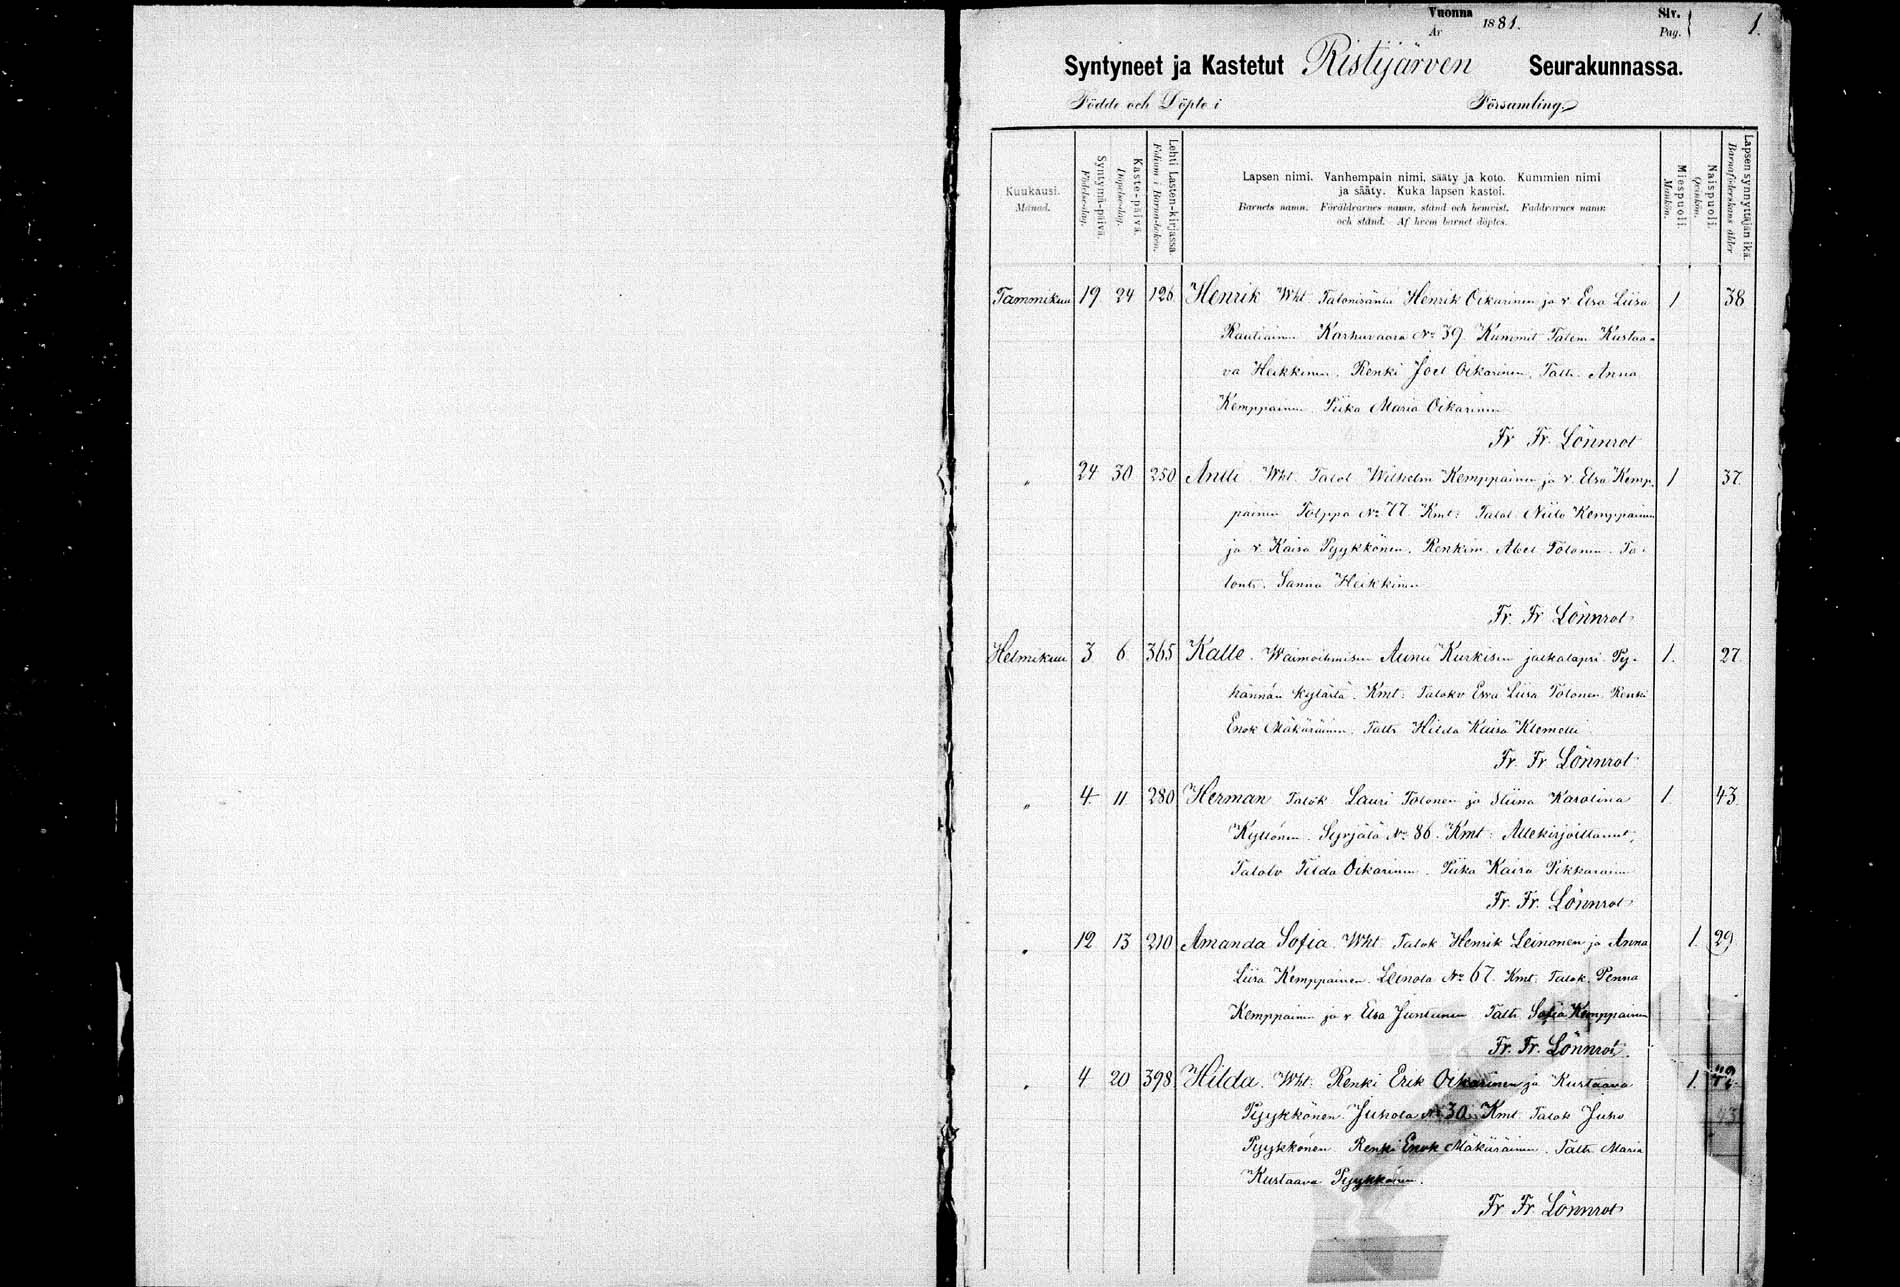 Vuonna 1881. Siv. 1.
År Pag.
Syntyneet ja Kastetut Ristijärven Seurakunnassa.
Födde och Döpte i Församling.
Kuukausi.
Månad.
Syntymä-päivä.
Födelse-dag.
Kaste-päivä.
Döpelse-dag.
Lehti Lasten-kirjassa.
Folium i Barna-boken.
Lapsen nimi. Vanhempain nimi, sääty ja koto. Kummien nimi
ja sääty. Kuka lapsen kastoi.
Barnets namn. Föräldrarnes namn, stånd och hemvist. Faddrarnes namn
och stånd. Af hvem barnet döptes.
Miespuoli.
Mankön.
Naispuoli.
Qvinkön.
Lapsen synnyttäjän ikä.
Barnaföderskans ålder
Tammikuu 19 24 126 Henrik Wht. Talonisäntä Henrik Oikarinen ja v. Elsa Liisa 1 38
Rautiainen Karhuvaara No 39 Kummit Talem Kustaa-
va Heikkinen. Renki Joel Oikarinen. Taltr. Anna
Kemppainen. Piika Maria Oikarinen
Fr. Fr. Lönnrot
" 24 30 250 Antti. Wht. Talol Wilhelm Kemppainen ja v. Elsa Kemp- 1 37
painen Tolppa No 77. Kmt: Talol. Niilo Kemppainen
ja v. Kaisa Pyykkönen. Renkim. Abel Tolonen. Ta-
lontr. Sanna Heikkinen
Fr. Fr. Lönnrot
Helmikuu 3 6 365 Kalle. Waimoihmisen Anni Kurkisen jalkalapsi Py- 1. 27
hännän kylästä. Kmt: Talokv Eva Liisa Tolonen. Renki
Enok Mäkäräinen. Taltr Hilda Kaisa Klemetti
Fr. Fr. Lönnrot
" 4 11 280 Herman Talok Lauri Tolonen ja Stiina Karolina 1. 43
Kyllönen. Syrjälä No 86. Kmt: Allekirjoittanut,
Talokv Tilda Oikarinen. Piika Kaisa Pikkarainen
Fr. Fr. Lönnrot
" 12 13 210 Amanda Sofia. Wht Talok Henrik Leinonen ja Anna 1. 29
Liisa Kemppainen. Leinola No 67. Kmt. Talok. Penna
Kemppainen ja v. Elsa Juntunen Taltr. Sofia Kemppainen
Fr. Fr. Lönnrot.
" 4 20 398 Hilda. Wht: Renki Erik Oikarinen ja Kustaava 1.
Pyykkönen. Juhola No 30. Kmt. Talok Juho 43
Pyykkönen Renki Enok Mäkäräinen. Taltr. Maria
Kustaava Pyykkönen.
Fr. Fr. Lönnrot